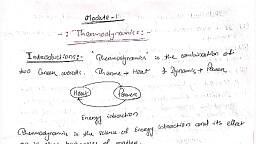 Module - 1
-: Thermodynamics :-
Introduction:- "Thermodynamics" is the combination of
two Greek words. Thermo → Heat & Dynamic → Power.
Heat Power
Energy interaction
Thermodynamics is the science of Energy interaction and its effect
on the behaviour of matter.